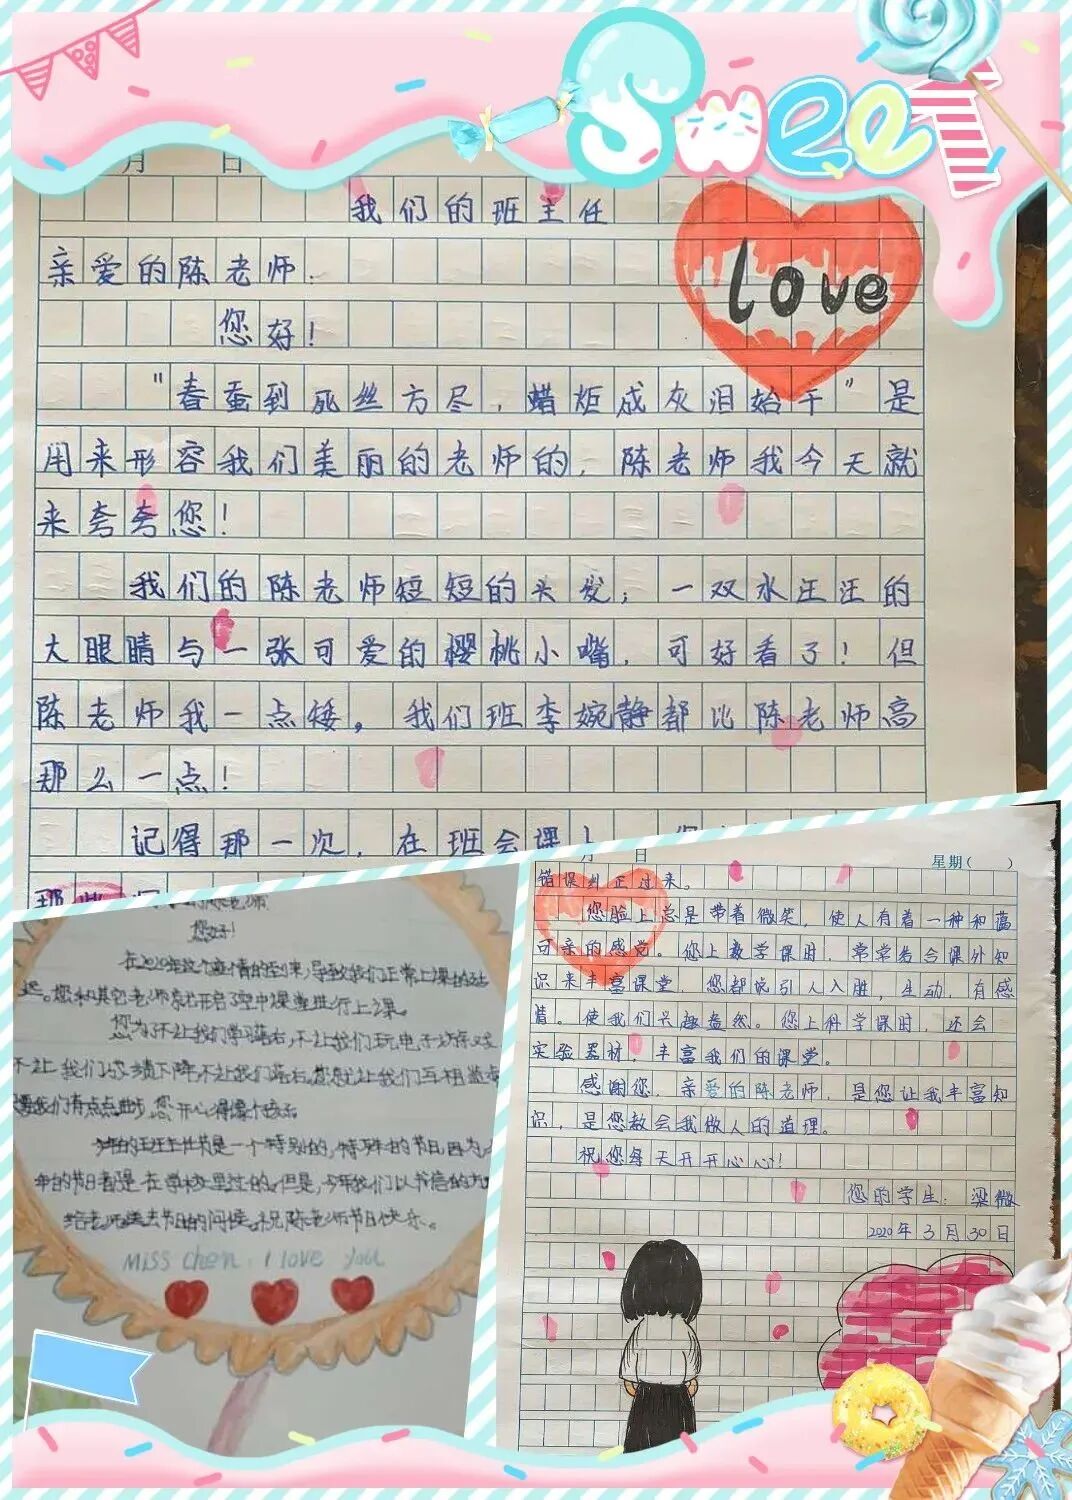 Sweet
月 日
我们的班主任
love
亲爱的陈老师：
您好！
“春蚕到死丝方尽，蜡炬成灰泪始干”是
用来形容我们美丽的老师的，陈老师我今天就
来夸夸您！
我们的陈老师短短的头发，一双水汪汪的
大眼睛与一张可爱的樱桃小嘴，可好看了！但
陈老师我一点矮。我们班李婉静都比陈老师高
那么一点！
记得那一次，在班会课上
您好！
在2020年这个疫情的到来，导致我们正常上课的
迟。您和其它老师商开启了空中课堂进行上课。
您为了不让我们学习落后，不让我们玩电子游戏
不让我们成绩下降不让我们落后，您就让我们互相监
我们有点点进步，您开心得像个孩子。
今年的班主任节是一个特别的，特殊的节日，因为
年的节日都是在学校里过的，但是，今年我们以书信的方
给老师送去节日的问候。祝陈老师节日快乐。
Miss Chen. I love you
月 日 星期（ ）
错误纠正过来。
您脸上总是带着微笑，使人有着一种和蔼
可亲的感觉。您上数学课时，常常结合课外知
识来丰富课堂，您都说引人入胜，生动，有感
情。使我们兴趣盎然。您上科学课时，还会
实验器材，丰富我们的课堂。
感谢您，亲爱的陈老师，是您让我丰富知
识，是您教会我做人的道理。
祝您每天开开心心！
您的学生：梁微
2020年3月30日